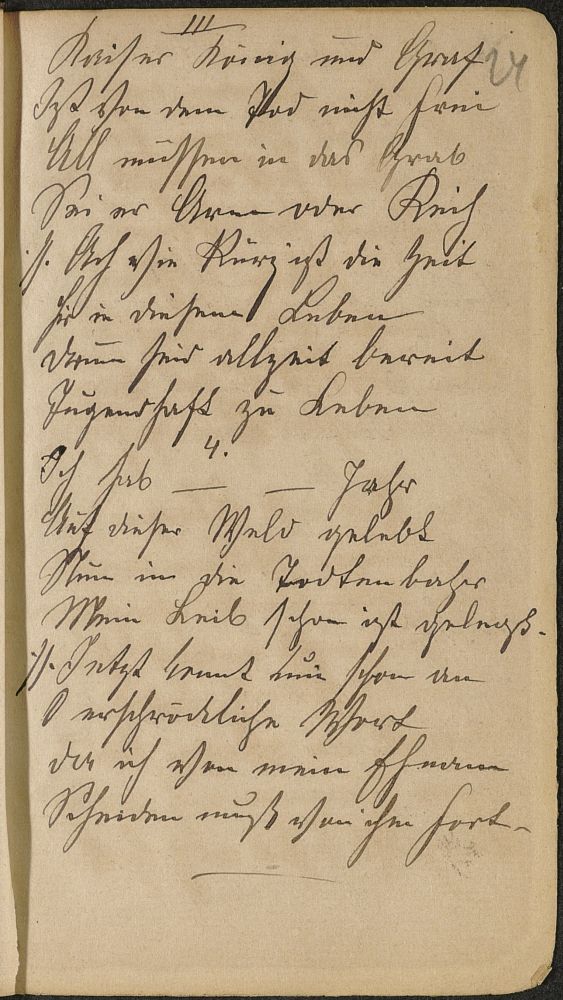 III
24
Kaiser König und Graf
Ist von dem Tod nicht frei
All müssen in das Grab
Sei er Arm oder Reich
:/: Ach wie Kurz ist die Zeit
hir in diesem Leben
drum seid allzeit bereit
Tugendhaft zu Leben
4.
Ich hab — — Jahr
Auf dieser Weld gelebt
Nun in die Todtenbahr
Mein Leib schon ist gelegt.
:/: Jetzt kommt nun schon an
O erschrödliche Wort
da ich von mein Ehmann
Scheiden muß von ihm fort